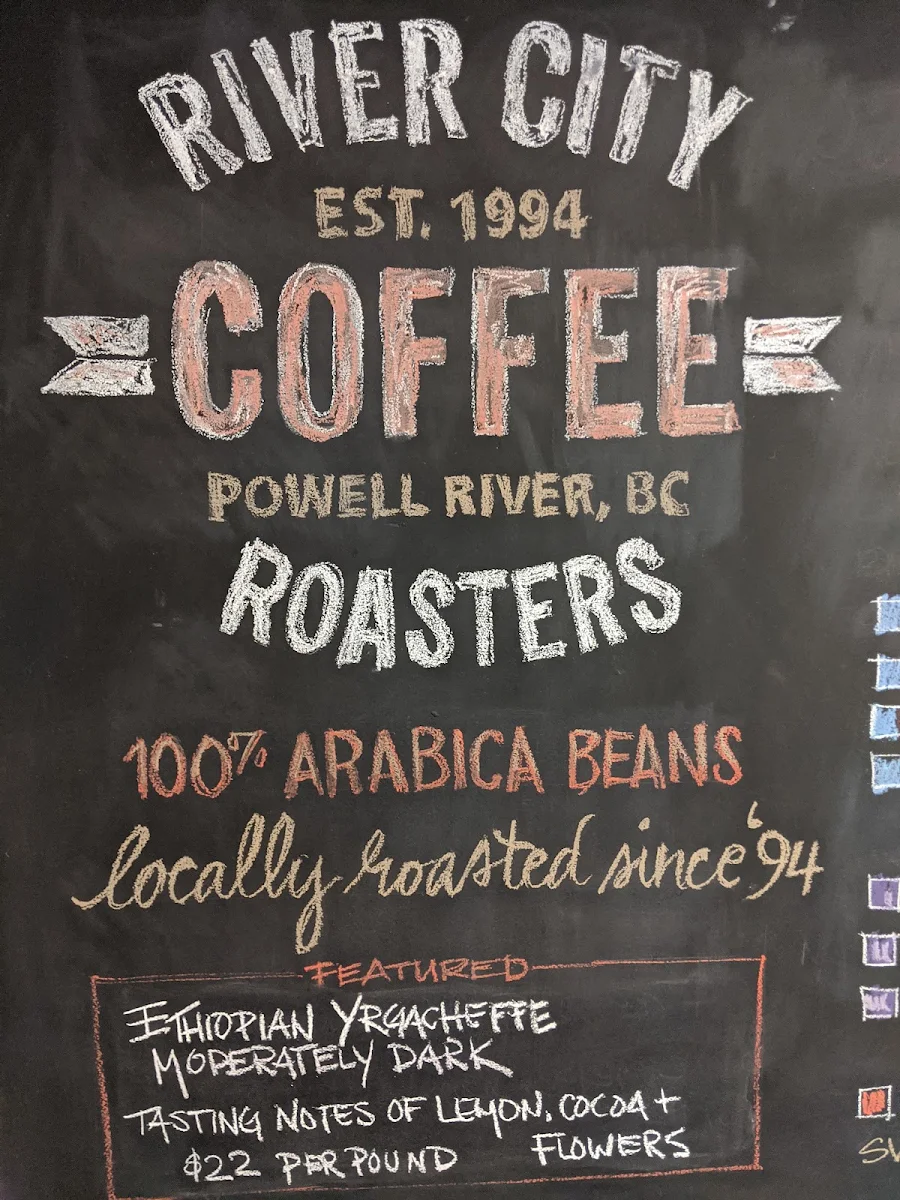 RIVER CITY
EST. 1994
COFFEE
POWELL RIVER, BC
ROASTERS
100% ARABICA BEANS
locally roasted since '94
FEATURED
ETHIOPIAN YRGACHEFFE
MODERATELY DARK
TASTING NOTES OF LEMON, COCOA +
FLOWERS
$22 PER POUND